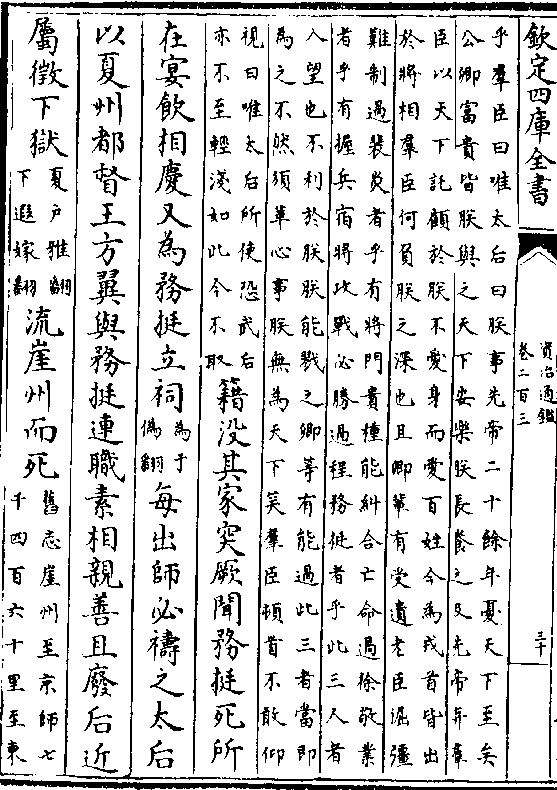 欽定四庫全書
資治通鑑
卷二百三
三十
乎羣臣曰唯太后曰朕事先帝二十餘年憂天下至矣
公卿富貴皆朕與之天下安樂朕長養之及先帝弃羣
臣以天下託顧於朕不愛身而愛百姓今為戎首皆出
於將相羣臣何負朕之深也且卿輩有受遺老臣倔彊
難制過裴炎者乎有將門貴種能糾合亡命過徐敬業
者乎有握兵宿將攻戰必勝過程務挺者乎此三人者
人望也不利於朕朕能戮之卿等有能過此三者當即
為之不然須革心事朕無為天下笑羣臣頓首不敢仰
視曰唯太后所使恐武后
亦不至輕淺如此今不取
籍没其家突厥聞務挺死所
在宴飲相慶又為務挺立祠
為于
偽翻
每出師必禱之太后
以夏州都督王方翼與務挺連職素相親善且廢后近
屬徵下獄
夏户雅翻
下遐嫁翻
流崖州而死
舊志崖州至京師七
千四百六十里至東